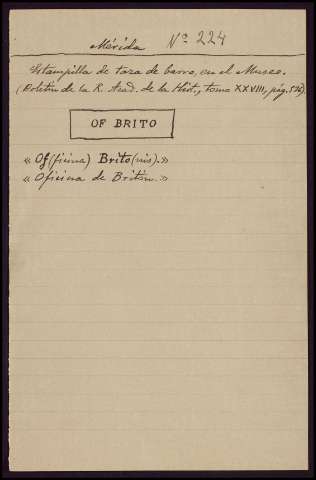 Mérida Nº 224
Estampilla de taza de barro, en el Museo.
(Boletín de la R. Acad. de la Hist., tomo XXVIII, pág.
OF BRITO
« Of(ficina) Brito(nis). »
« Oficina de Briton. »